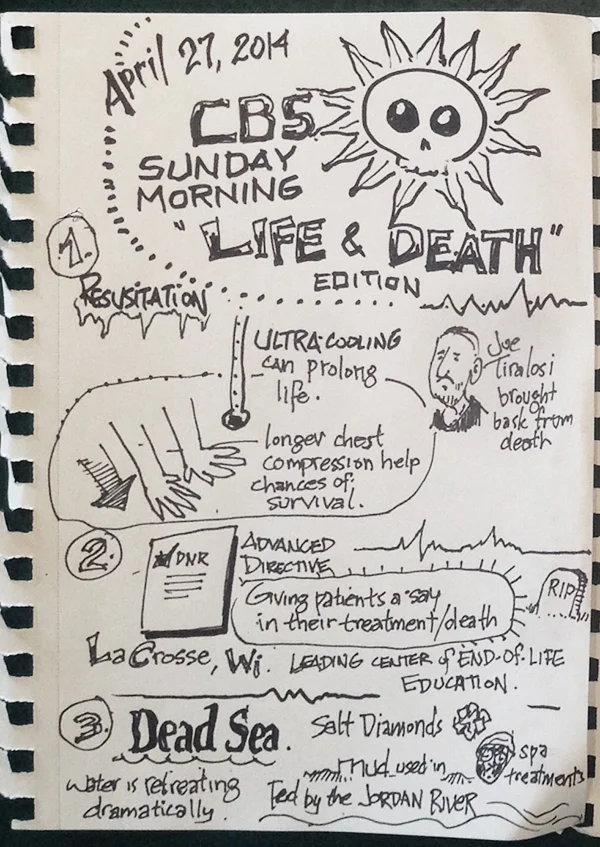 April 27, 2014
CBS
SUNDAY
MORNING
"LIFE & DEATH"
EDITION
1.
RESUSITATION
ULTRA-COOLING
can prolong
life.
Joe
Tiralosi
brought
bask from
death
longer chest
compression help
chances of
survival.
2.
DNR
ADVANCED
DIRECTIVE
Giving patients a say
in their treatment/death
RIP
La Crosse, Wi. LEADING CENTER of END-OF-LIFE
EDUCATION.
3.
Dead Sea.
Salt Diamonds
mud used in
spa
treatments
water is retreating
dramatically.
Fed by the JORDAN RIVER